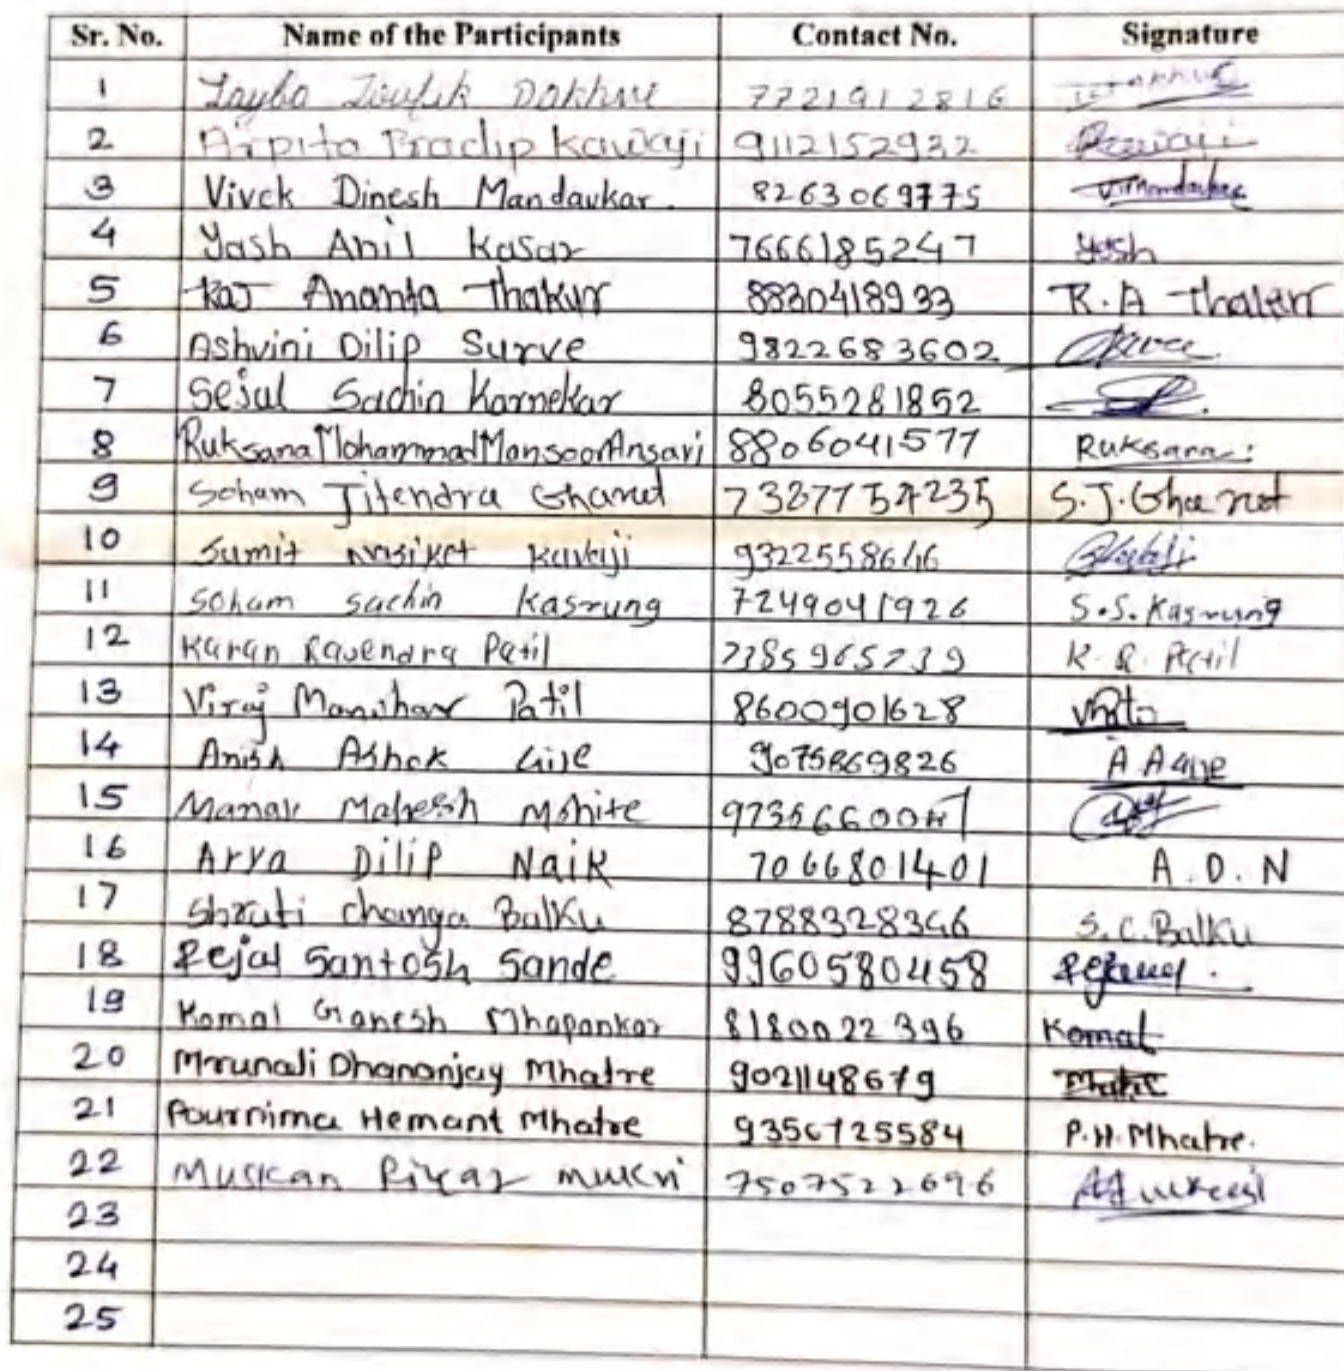 Sr. No. Name of the Participants Contact No. Signature
1 Tayba Toufik Dakhve 7721912816
2 Arpita Pradip Kawaji 9112152932
3 Vivek Dinesh Mandavkar. 8263069775 Vmandavkar
4 Yash Anil Kasar 7666185247 Yash
5 Raj Ananta Thakur 8830418933 R.A Thakur
6 Ashvini Dilip Surve 9822683602
7 Sejal Sachin Karnekar 8055281852
8 Ruksana Mohammad Mansoor Ansari 8806041577 Ruksana
9 Soham Jitendra Gharat S.J.Gharat
10 Sumit Kawaji
11 Soham Sachin Kasrung 7249041926 S.S. Kasrung
12 Karan Ravendra Patil K.R. Patil
13 Viraj Manohar Patil 8600901628
14 Anish Ashok 9075869826
15 Manav Mahesh Mohite
16 Arya Dilip Naik 7066801401 A.D.N
17 Shruti Changa Balku 8788328346 S.C.Balku
18 Rejal Santosh Sande 9960580458
19 Komal Ganesh Mhapankar 8180022396 Komal
20 Mrunali Dhananjay Mhatre 9021148679 Mhatre
21 Pournima Hemant Mhatre 9356725584 P.H.Mhatre.
22 Muskan Riyaz Mukri 7507522696
23
24
25